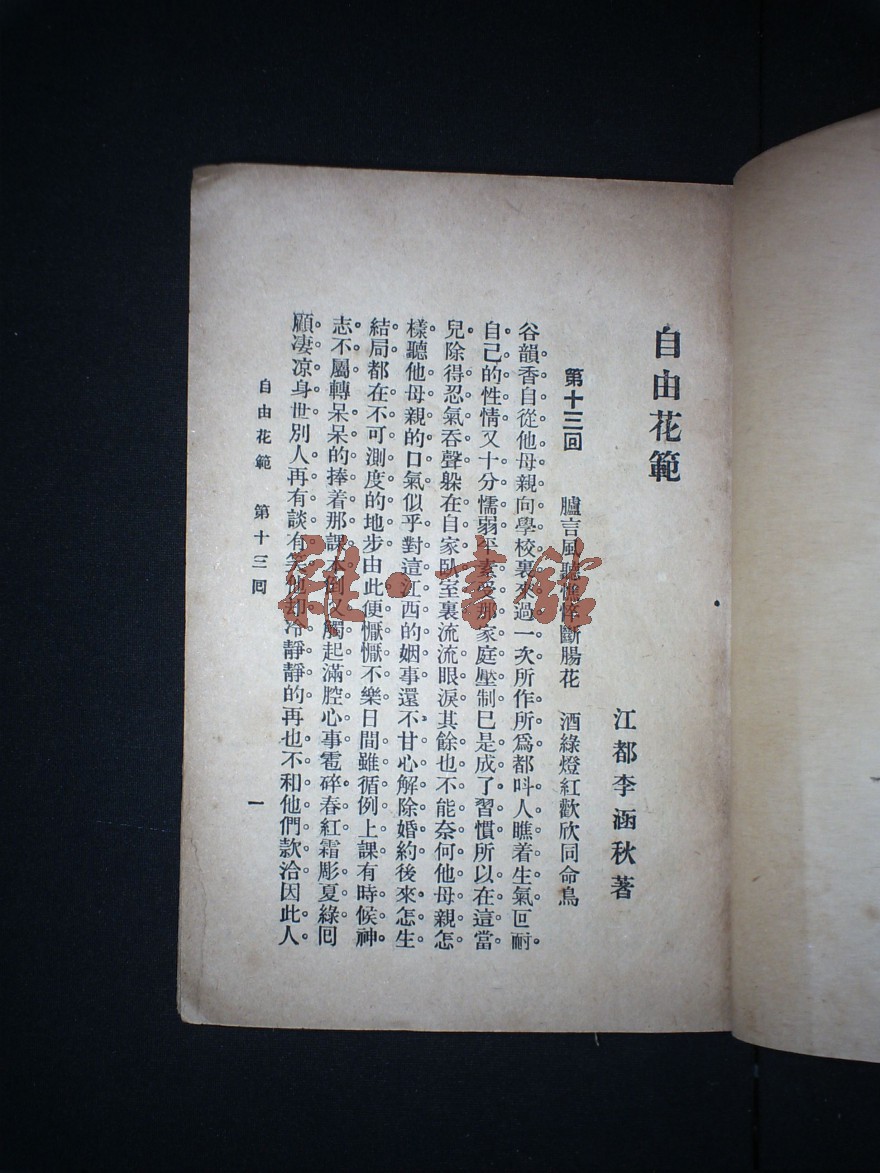 自由花範
江都李涵秋著
第十三回 臚言風聽憔悴斷腸花 酒綠燈紅歡欣同命鳥
谷韻香自從他母親向學校裏來過一次所作所爲都呌人瞧着生氣叵耐
自己的性情又十分懦弱平素受那家庭壓制巳是成了習慣所以在這當
兒除得忍氣吞聲躲在自家臥室裏流流眼淚其餘也不能奈何他母親怎
樣聽他母親的口氣似乎對這江西的姻事還不甘心解除婚約後來怎生
結局都在不可測度的地步由此便懨懨不樂日間雖循例上課有時候神
志不屬轉呆呆的捧着那課本倒又觸起滿腔心事雹碎春紅霜彫夏綠囘
顧凄凉身世別人再有談有笑他却冷靜靜的再也不和他們款洽因此人
自由花範 第十三囘
一
雅·書館